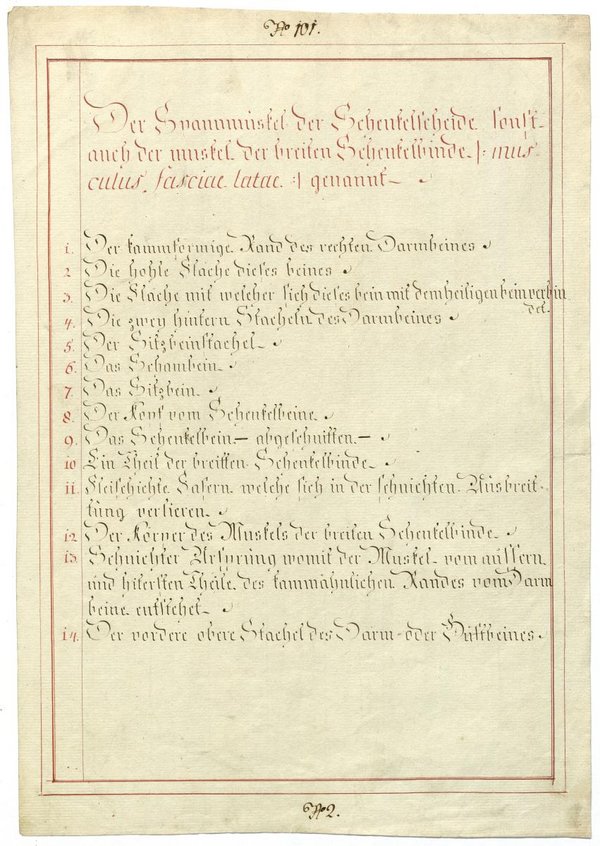 No 101.
Der Spannmuskel der Schenkelscheide sonst
auch der muskel der breiten Schenkelbinde |: mus
culus fasciae latae :| genannt
1. Der kammformige Rand des rechten Darmbeines
2 Die hohle Flache dieses beines
3. Die Flache mit welcher sich dieses bein mit dem heiligen bein verbin
det.
4. Die zwey hintern Stacheln des Darmbeines
5. Der Sitzbeinstachel
6. Das Schambein
7. Das Sitzbein
8. Der Kopf vom Schenkelbeine
9. Das Schenkelbein – abgeschnitten –
10 Ein Theil der breitten Schenkelbinde
11. Fleischichte Fasern welche sich in der sehnichten Ausbreit-
tung verlieren
12. Der Körper des Muskels der breiten Schenkelbinde
13. Sehnichter Ursprung womit der Muskel vom aussern
und Theile des kammähnlichen Randes vom Darm
beine entstehet
14. Der vordere obere Stachel des Darm- oder Hüftbeines
No 2.